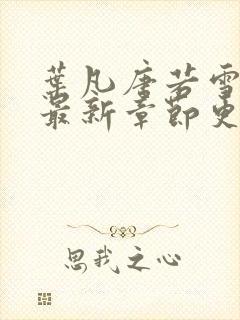 葉凡唐若雪
最新章節更
思我之心